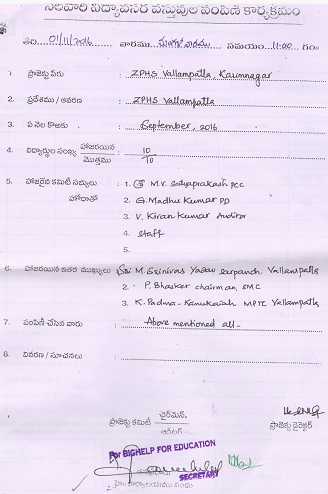 నెలవారీ విద్యావసర వస్తువుల పంపిణీ కార్యక్రమం
తేది. 01/11/2016 వారము మంగళవారము సమయం 11:00 గం
1 ప్రాజెక్టు పేరు : ZPHS Vallampatla, Karimnagar
2. ప్రదేశము / ఆవరణ : ZPHS Vallampatla
3. ఏ నెల కొఱకు : September, 2016
4. విద్యార్థుల సంఖ్య హాజరయిన / మొత్తము : 10/10
5. హాజరైన కమిటీ సభ్యులు : 1. M.V. Satyaprakash PCC
హోదాతో 2. G. Madhu Kumar PD
3. V. Kiran Kumar Auditor
4. Staff
5.
6. హాజరయిన ఇతర ముఖ్యులు : Sri M. Srinivas Yadav Sarpanch. Vallampatla
2. P. Bhasker chairman, SMC
3. K. Padma - Kanukaiah MPTC Vallampatla,
7. పంపిణీ చేసిన వారు : Above mentioned all -
8. వివరణ / సూచనలు :
ప్రాజెక్టు కమిటీ చైర్మెన్. / ఆడిటర్ ప్రాజెక్టు డైరెక్టర్
For BIGHELP FOR EDUCATION
SECRETARY